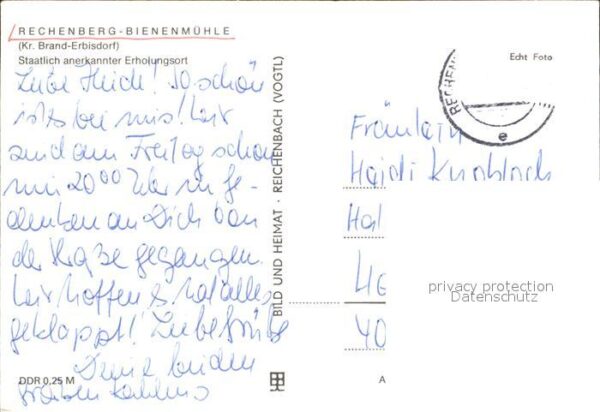 RECHENBERG-BIENENMÜHLE
(Kr. Brand-Erbisdorf)
Staatlich anerkannter Erholungsort
Liebe Heidi! So schön
ists bei mis! Wir
sind am Freitag schon
um 20⁰⁰ Uhr in Ge-
denken an Dich von
der Straße gegangen.
Wir hoffen es hat alles
geklappt! Liebe Grüße
Deine beiden
DDR 0,25 M
BILD UND HEIMAT · REICHENBACH (VOGTL)
Echt Foto
RECHEN
e
Fräulein
Heidi Knobloch
Hal
40
A
privacy protection
Datenschutz